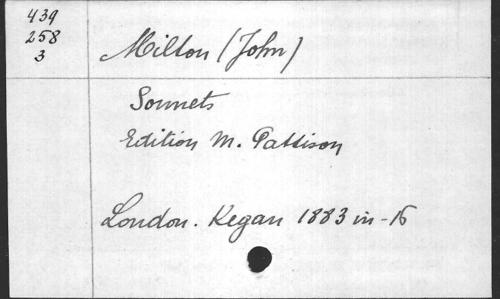 439
258
3
Milton (John)
Sonnets
Edition M. Pattison
London. Kegan 1883 in-16